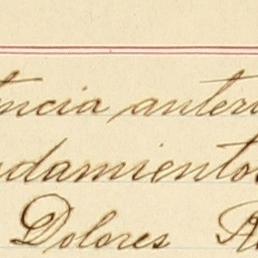 ncia anteri
damientos
Dolores